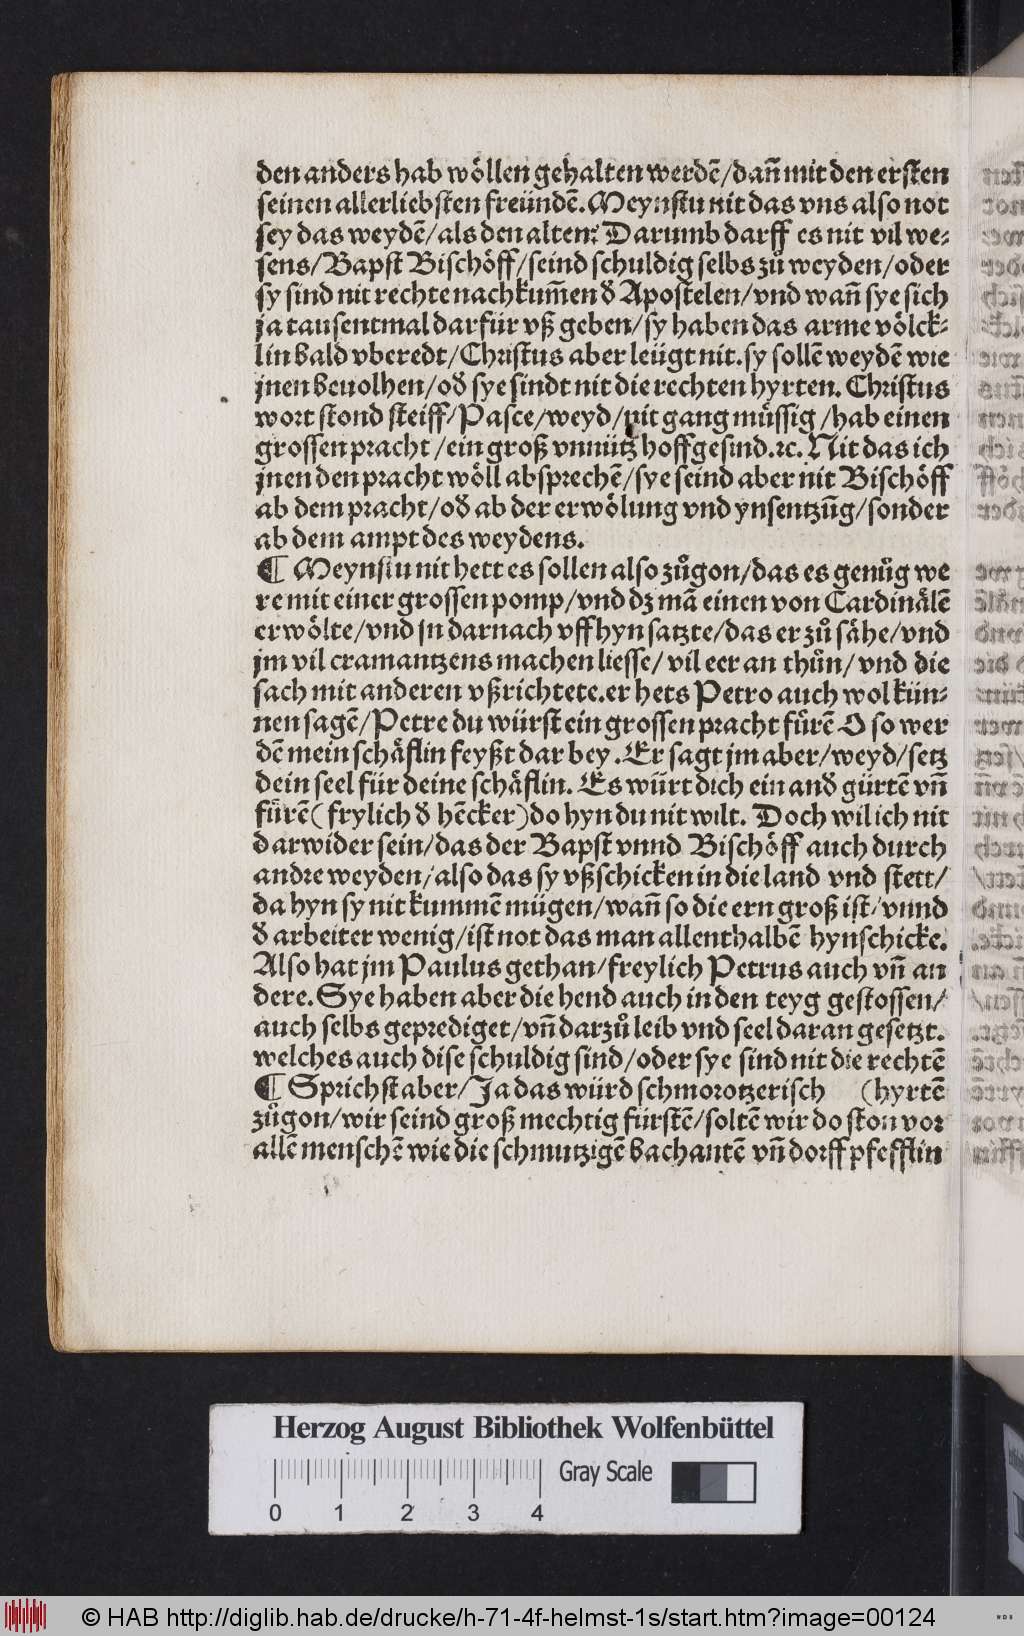 den anders hab wöllen gehalten werdē/dañ mit den ersten
seinen allerliebsten freünden̄. Meynstu nit das vns also not
sey das weydē/als den alten? Darumb darff es nit vil we⸗
sens/Bapst Bischöff/seind schuldig selbs zů weyden/oder
sy sind nit rechte nachkum̄en ð Apostelen/vnd wañ sye sich
ja tausentmal darfür vß geben/sy haben das arme völck⸗
lin bald vberedt/Christus aber leügt nit. sy sollē weydē wie
jnen beuolhen/oð sye sindt nit die rechten hyrten. Christus
wort stond steiff/Pasce/weyd/nit gang müssig/hab einen
grossen pracht/ein groß vnnütz hoffgesind.⁊c. Nit das ich
jnen den pracht wöll absprechē/sye seind aber nit Bischöff
ab dem pracht/oð ab der erwölung vnd ynsentzūg/sonder
ab dem ampt des weydens.
¶ Meynstu nit hett es sollen also zůgon/das es genůg we
re mit einer grossen pomp/vnd dz mā einen von Cardinälē
erwölte/vnd jn darnach vff hyn satzte/das er zů sähe/vnd
jm vil cramantzens machen liesse/vil eer an thůn/vnd die
sach mit anderen vßrichtete. er hets Petro auch wol kün⸗
nen sagē/Petre du würst ein grossen pracht fürē O so wer
dē mein schäflin feyßt dar bey. Er sagt jm aber/weyd/setz
dein seel für deine schäflin. Es würt dich ein and̄ gürtē vñ
fürē(frylich ð hēcker)do hyn du nit wilt. Doch wil ich nit
darwider sein/das der Bapst vnnd Bischöff auch durch
andre weyden/also das sy vßschicken in die land vnd stett/
da hyn sy nit kummē mügen/wañ so die ern groß ist/vnnd
ð arbeiter wenig/ist not das man allenthalbē hynschicke.
Also hat jm Paulus gethan/freylich Petrus auch vñ an
dere. Sye haben aber die hend auch in den teyg gestossen/
auch selbs geprediget/vñ darzů leib vnd seel daran gesetzt.
welches auch dise schuldig sind/oder sye sind nit die rechtē
¶ Sprichst aber/Ja das würd schmorotzerisch (hyrtē
zůgon/wir seind groß mechtig fürstē/soltē wir do ston vor
allē menschē wie die schmutzigē bachantē vñ dorff pfefflin
Herzog August Bibliothek Wolfenbüttel
Gray Scale
0 1 2 3 4
© HAB http://diglib.hab.de/drucke/h-71-4f-helmst-1s/start.htm?image=00124